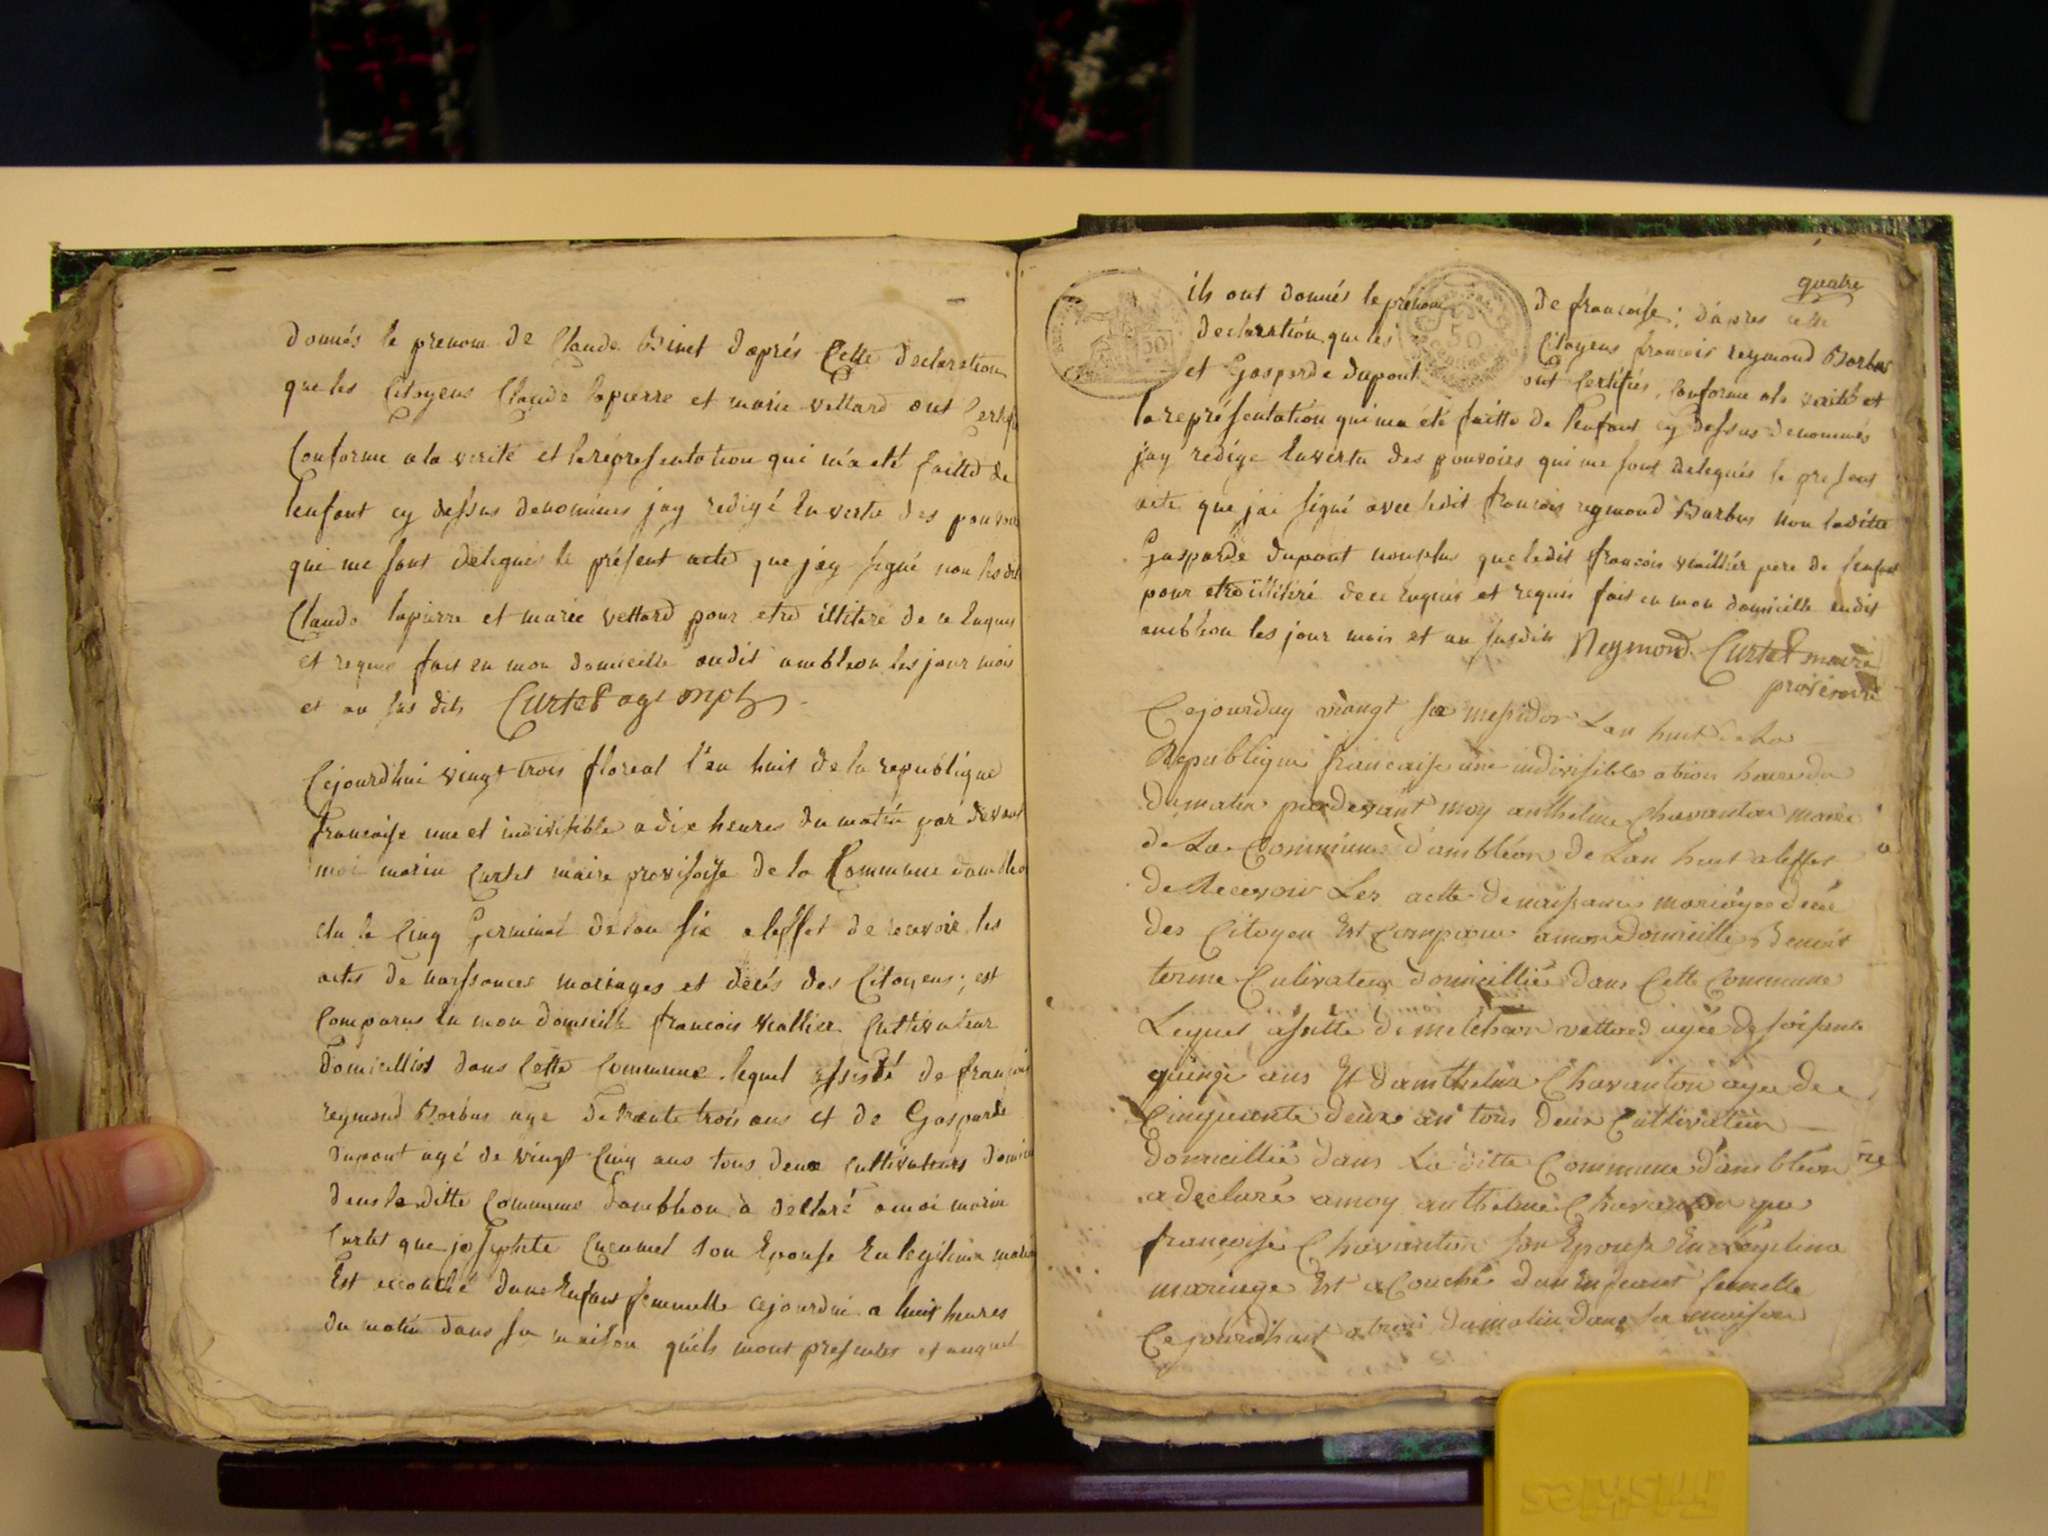 donnés le prenom de Claude Binet daprés Cette declaration
que les Citoyens Claude lapierre et marie vettard ont Certifié
Conforme ala verité et la representation qui m'a eté faitte de
lenfant cy dessus denommes jay redigé En vertu des pouvoirs
qui me sont delegués le présent acte que jay signé non les dit
Claude lapierre et marie vettard pour etre illiteré de ce Enquis
et requis fait en mon domicille audit ambleon les jour mois
et an sus dits Curtet agt mpl
Cejourdhui vingt trois floreal l'an huit de la republique
francaise une et indivisible a dix heures du matin par devant
moi marin Curtet maire provisoire de la Commune dambleon
élu le Cinq Germinal de lan six a leffet de recevoir les
actes de naissances mariages et décés des Citoyens; est
Comparus En mon domicille francois viallier Cultivateur
domicilliés dans Cette Commune lequel assisté de francois
reymond Barbus age de trente trois ans et de Gasparde
dupont agé de vingt Cinq ans tous deux Cultivateurs
dans laditte Commune dambleon à déclaré a moi marin
Curtet que josephte son Epouse En legitime
Est accouché dune Enfant femmelle cejourdui a huit heures
du matin dans sa maison quils mont presentés et auquel
quatre
50
50
ils ont donnés le prénom de francoise; dápres cette
declaration que les Citoyens francois reymond Barbus
et Gasparde dupont ont Certifiés, Conforme ala verité et
la représentation qui ma été faitte de lenfant cy dessus denommés
jay redige Envertu des pouvoirs qui me sont delegués le present
acte que jai signé avec ledit francois reymond Barbus non laditte
Gasparde dupont nonplus que ledit francois viallier pere de lenfant
pour etre illitéré dece Enquis et requis fait en mon domicille audit
ambleon les jour mois et an susdits Reymond Curtet maire
provisoire
Cejourduy viangt six mesidor Lan huit de La
Republique francaise une indivisible a heure du
du matin pardevant moy anthelme Chavanton maire
de La Commune d'ambléon de Lan huit aleffet
de Recevoir Les acte denaisance mariages
des Citoyen Est Comparu amon domicille benoit
terme Cultivateur domicillié dans Cette Commune
Lequel de vettard agée de soisante
quinze ans Et d'anthelme Chavanton agée de
Cinquante deux an tous deux Cultivateur
domicillié dans La ditte Commune d'ambléon
a declaré amoy anthelme Chavanton que
francoise Chavanton son Epouse En Legitime
mariage Est acouchée dun Enfant femelle
Cejourdhuit a trois du matin dans sa maison